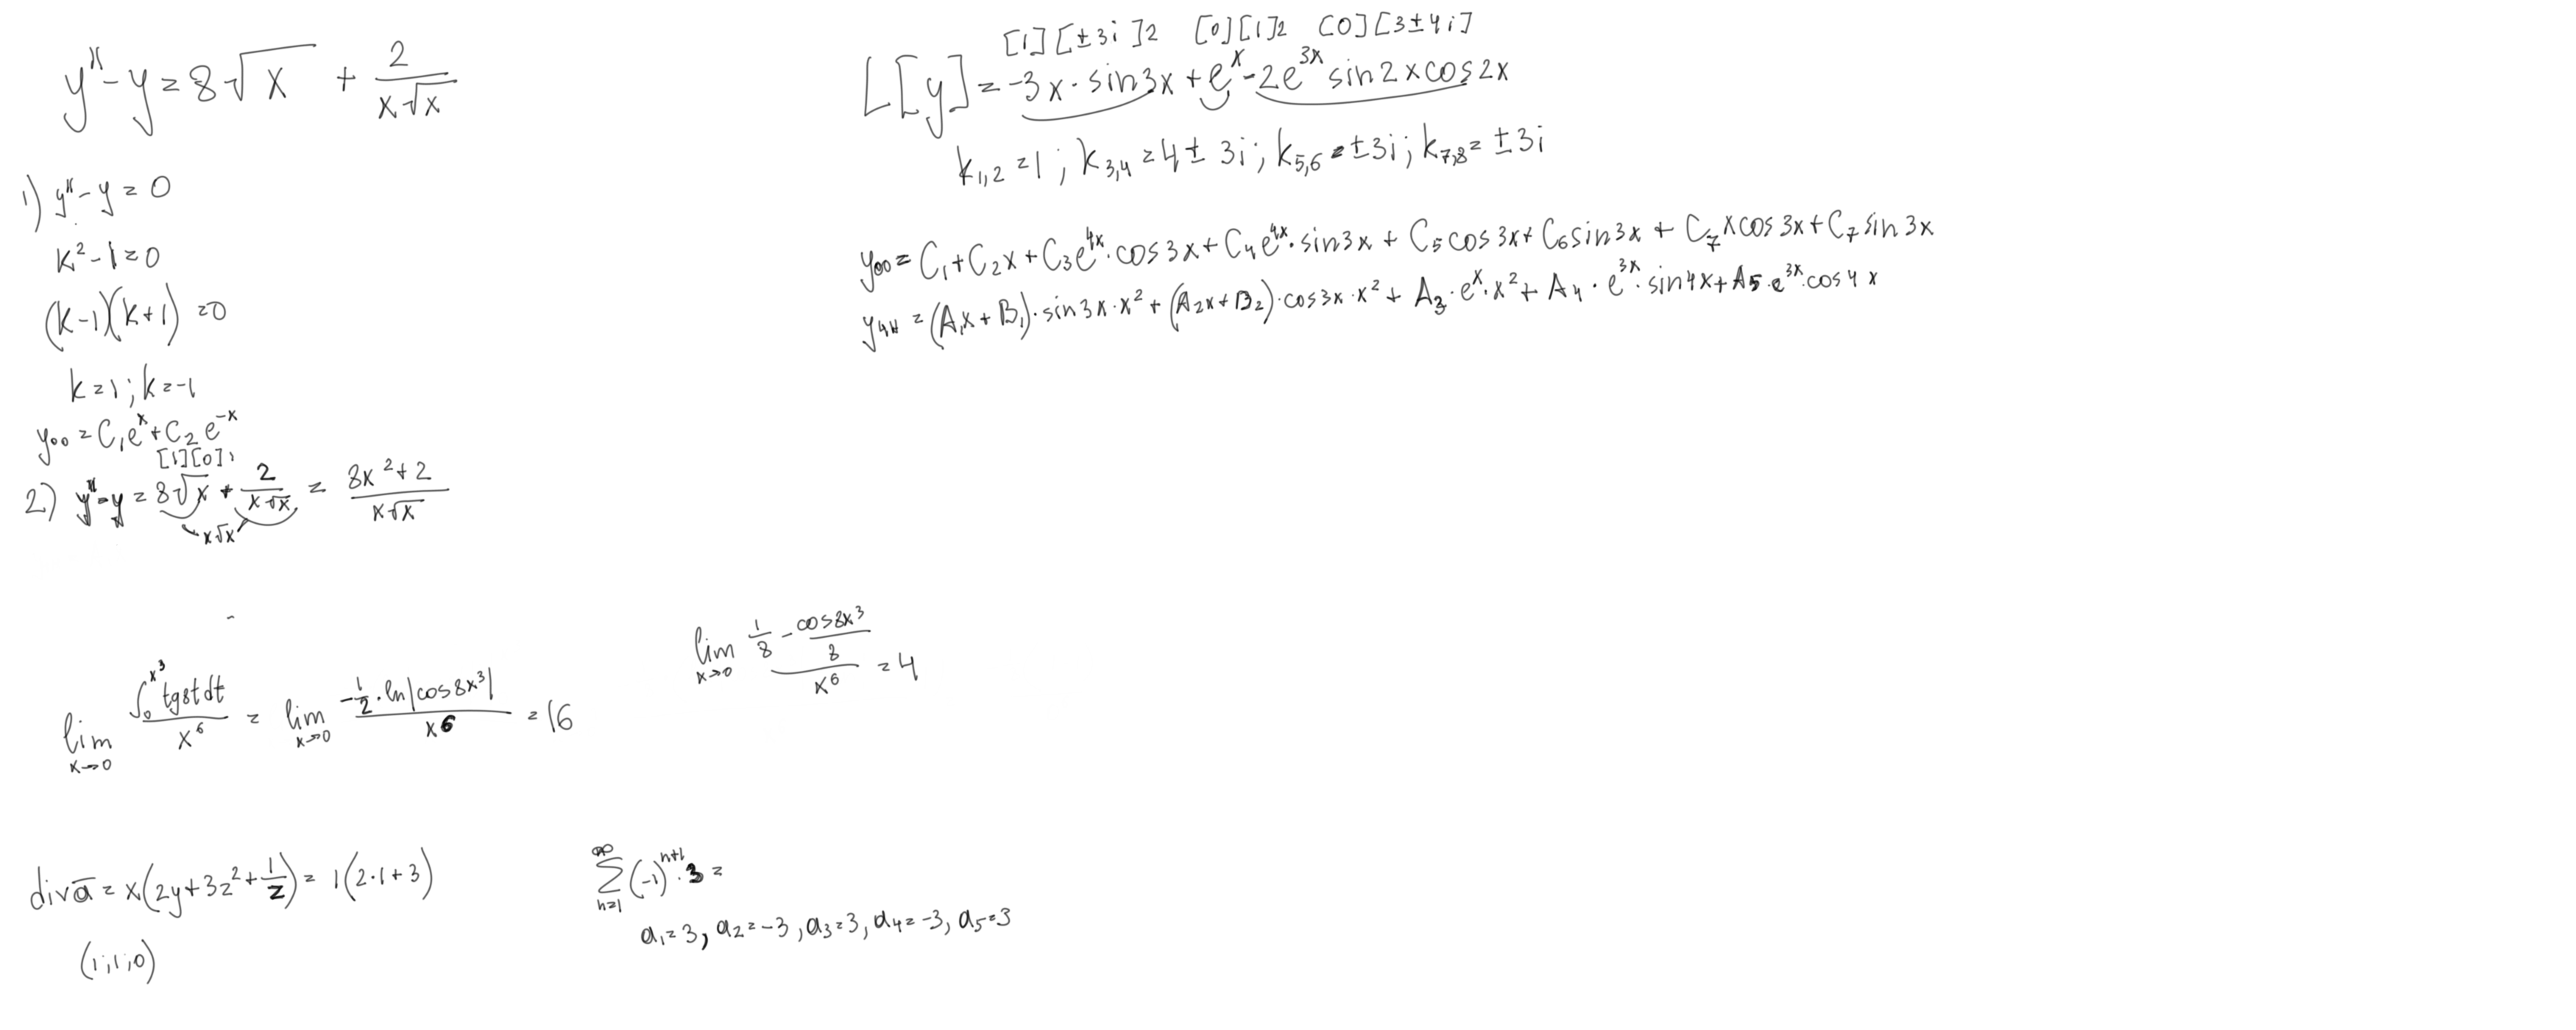 y'' - y = 8√x + 2/(x√x)
1) y'' - y = 0
k² - 1 = 0
(k-1)(k+1) = 0
k = 1; k = -1
y₀₀ = C₁eˣ + C₂e⁻ˣ
[1][0],
2) y'' - y = 8√x + 2/(x√x) = (8x² + 2)/(x√x)
x√x
[1][±3i]2 [0][1]2 [0][3±4i]
L[y] = -3x · sin3x + eˣ - 2e³ˣ sin2x cos2x
k₁,₂ = 1; k₃,₄ = 4 ± 3i; k₅,₆ = ±3i; k₇,₈ = ±3i
y₀₀ = C₁ + C₂x + C₃e⁴ˣ · cos3x + C₄e⁴ˣ · sin3x + C₅cos3x + C₆sin3x + C₇xcos3x + C₇sin3x
yчн = (A₁x + B₁) · sin3x · x² + (A₂x + B₂) · cos3x · x² + A₃ · eˣ · x² + A₄ · e³ˣ · sin4x + A₅ · e³ˣ · cos4x
lim x→0 (∫₀^x³ tg8tdt)/x⁶ = lim x→0 (-1/2 · ln|cos8x³|)/x⁶ = 16
lim x→0 (1/8 - cos8x³/8)/x⁶ = 4
div a̅ = x(2y + 3z² + 1/z) = 1(2·1 + 3)
(1;1;0)
∑ n=1 ∞ (-1)ⁿ⁺¹ · 3 =
a₁ = 3, a₂ = -3, a₃ = 3, a₄ = -3, a₅ = 3